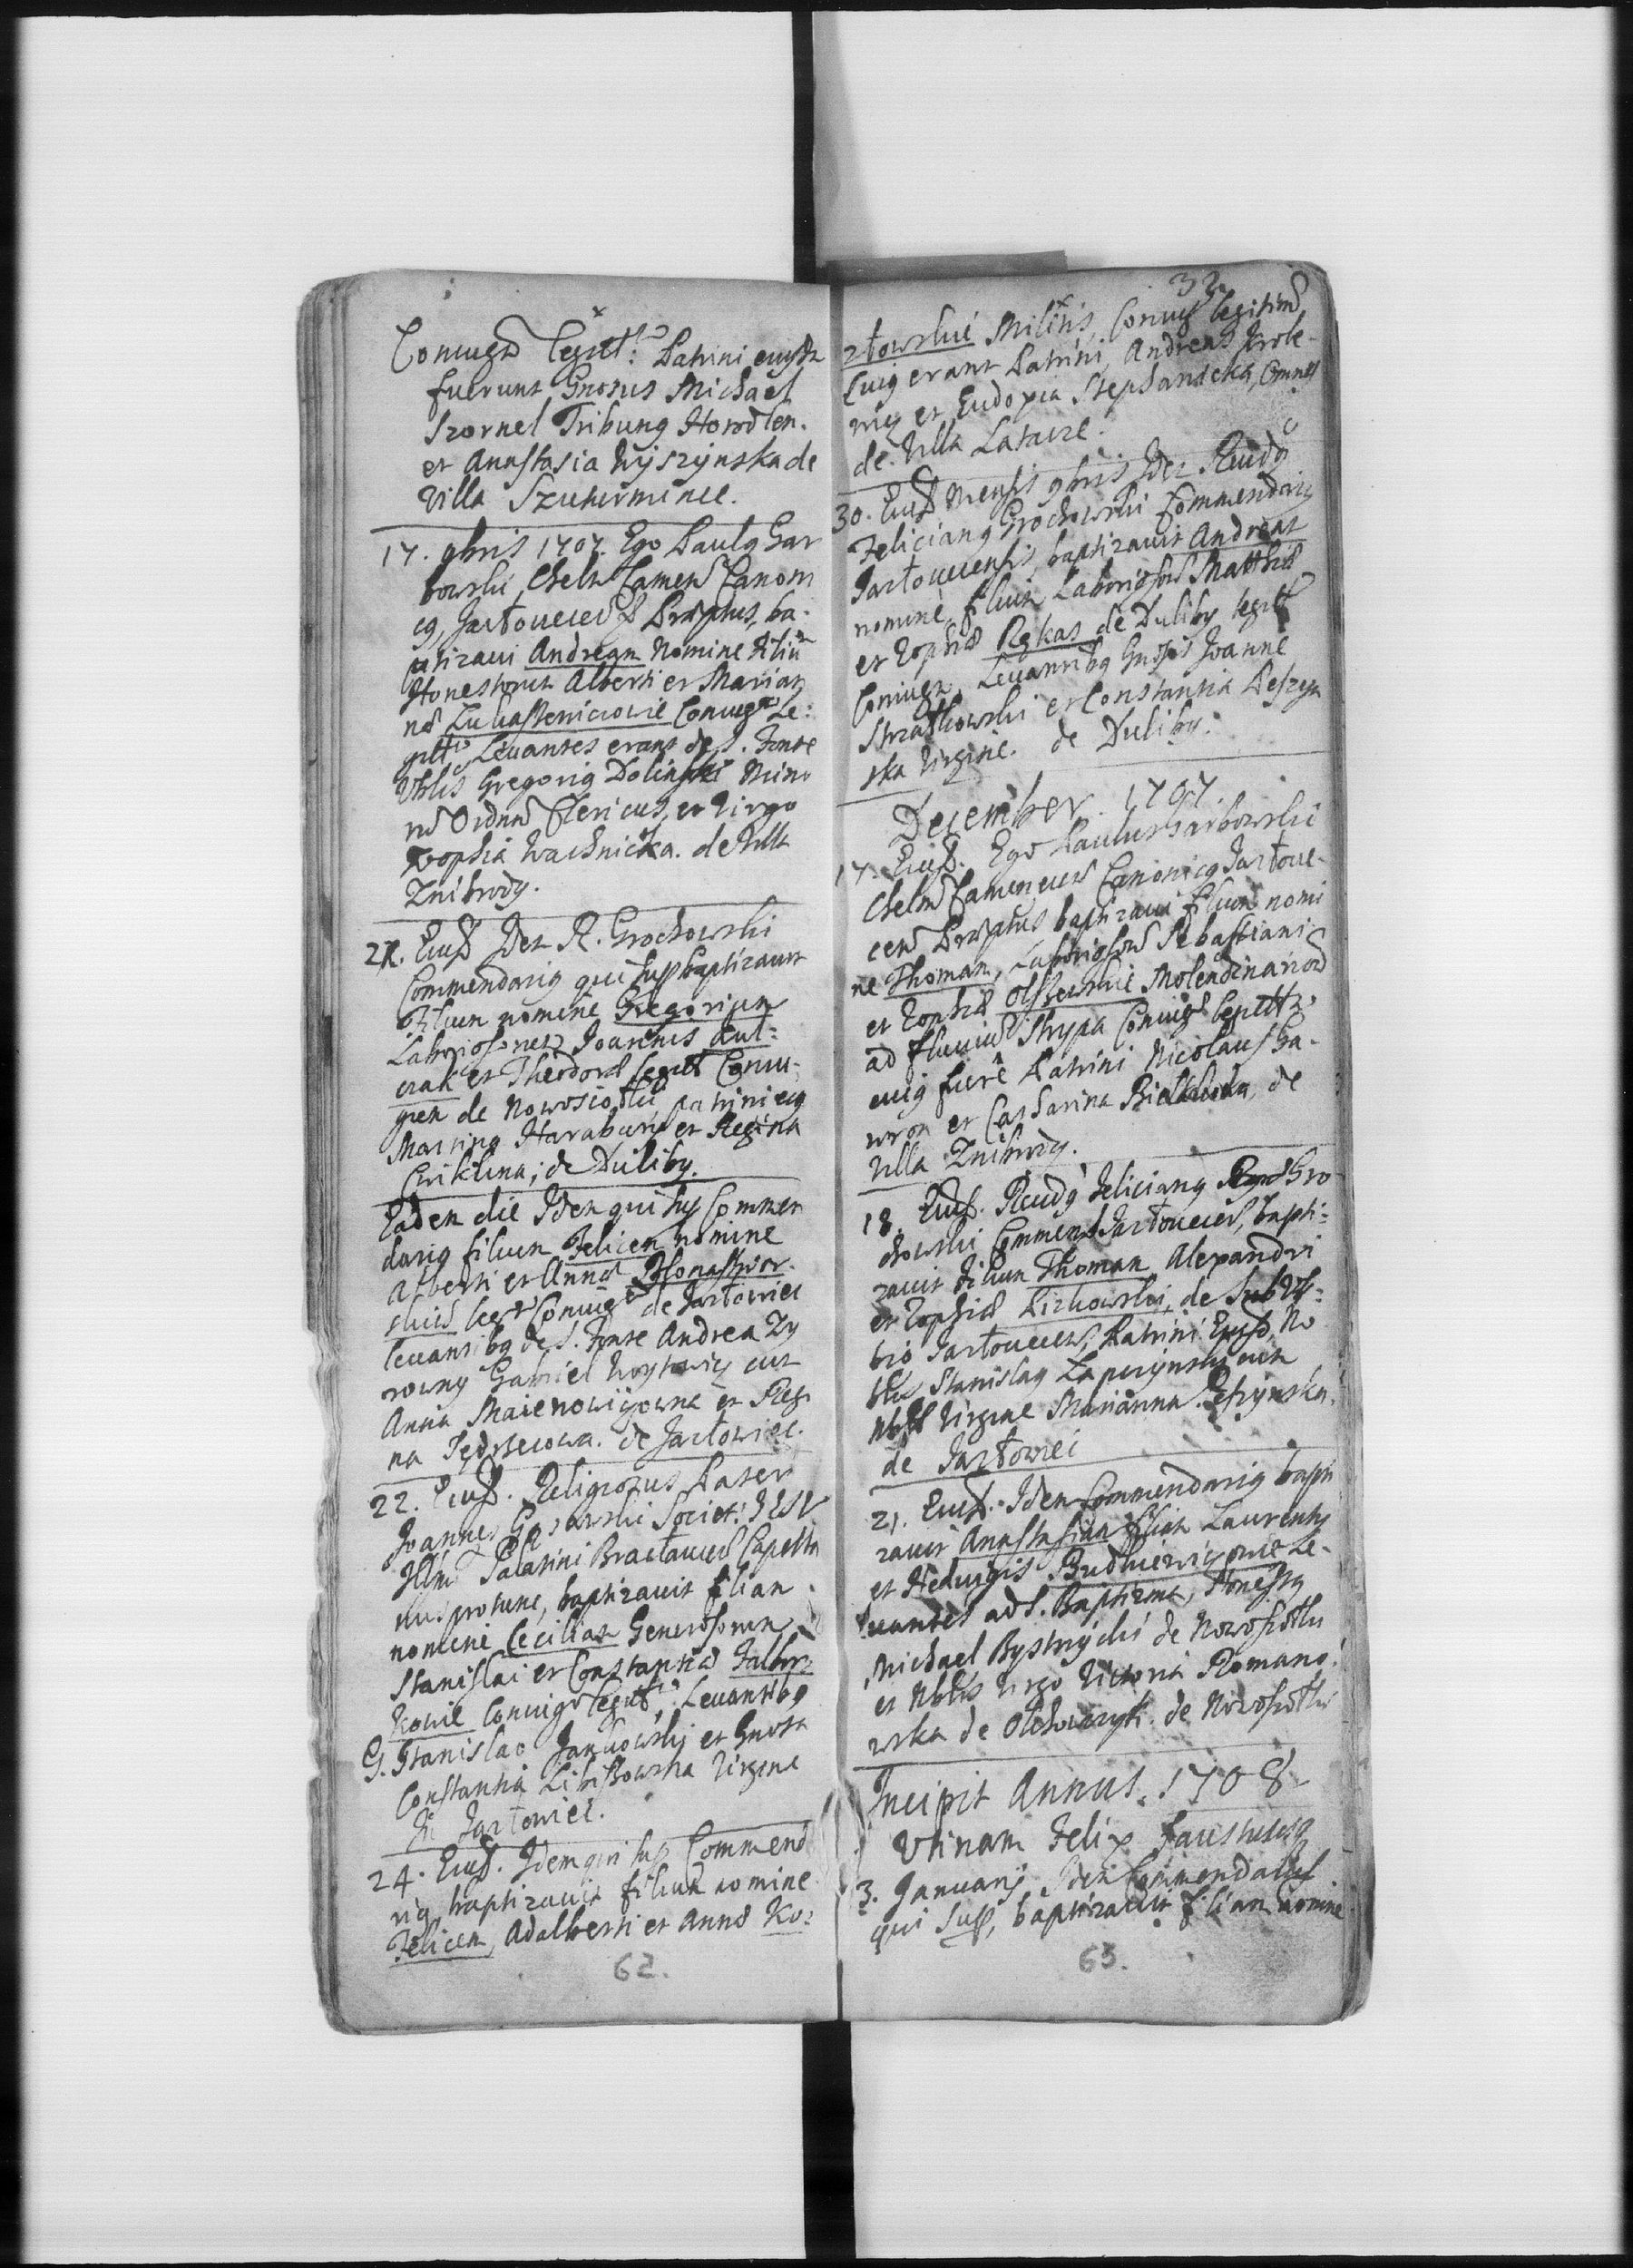 Coniugū legitt: Patrini eiusdē
fuerunt Gnosus Michael
Szornel Tribunꝯ Horodlen.
et Anastasia Wyszynska de
Villa Szuturmince.
17. 9bris 1707. Ego Paulꝯ Gar
bowski, Chelm Camen Canoni
cꝯ, Jazłouecen Præptus, ba-
ptizaui Andream Nomine Filiū
Honestorum Alberti et Marian
næ Lukasiewiczowie Coniugum Le:
gitt. Leuantes erant de S. Fonte
Vblis Gregoriꝯ Dolinski Mino
rū Ordinū Clericus, et Virgo
Zophia Wachnicka. de Villa
Znibrody.
21. Eiusd Idem R. Grochowski
Commendariꝯ qui sup baptizauit
Filium nomine Gregorium
Laboriosorum Joannis
et Theodoræ legitt Coniu-
gum de Nowosiołki, patrini eiꝯ
Martinꝯ Haraburj et Regina
Cwiklina; de Duliby.
Eadem die Idem qui sup Commen
dariꝯ filium Felicem nomine
Alberti et Annæ Monastyr-
skich legt Coniug de Jazłowiec
leuantibꝯ de S. Fonte Andrea Zy
rowny Gabriel Woytowicz cum
Anna Maienowiczowna et Regi
na Jędrzeiowa. de Jazłowiec.
22. Eiusd. Religiosus Pater
Joannes Societ: JESV
Illmi Palatini Bracłauien Capella
nus protunc, baptizauit filiam
nomine Ceciliam Generosorum
Stanislai et Constantiæ Jalbrz
kowie Coniugum legitt. Leuantibꝯ
G. Stanislao Janikowskj et Gnosa
Constantia Libiszowska Virgine
In Jazłowiec.
24. Eiusd. Idem qui sup Commenda
riꝯ baptizauit filium nomine
Felicem, Adalberti et Annæ Ko:
62.
32
złowskie Militis, Coniug legitimorū
Cuiꝯ erant Patrini, Andreas Krole-
wiꝯ et Eudoxia Stephanicka, Omnes
de Villa Latacze.
30. Eiusd Mensis 9bris Idem Rndꝯ
Felicianꝯ Grochowski Commendariꝯ
Jazłouecensis, baptizauit Andream
nomine, filium Laboriosorū Matthiæ
et Zophiæ Rękas de Duliby legitt
Coniugū. Leuantibꝯ Gnosis Joanne
Strzałkowski et Constantia Leszczyn
ska Virgine. de Duliby.
December. 1707.
17. Eiusd. Ego Paulus Garbowski
Chelm Camenecen Canonicꝯ Jazłoue-
cen Præptus baptizaui filium nomi
ne Thomam, Laboriosorū Sebastiani
et Zophiæ Olszewskie Molendinariorū
ad fluuiū Strypa Coniugū legitt.
cuiꝯ fuere Patrini Nicolaus Ga-
wron et Catharina Bielkuska, de
Villa Znibrody.
18. Eiusd. Rndꝯ Felicianꝯ Gro
chowski Commend Jazłouecen, bapti-
zauit filium Thomam Alexandri
et Zophiæ Lizkowski, de Subur-
bio Jazłouecen, Patrini Eiusd, No
blis Stanislaꝯ Lapczynski cum
Nbli Virgine Marianna Petrynska.
de Jazłowei
21. Eiusd. Idem Commendariꝯ bapti
zauit Anastasiam filiam Laurentij
et Hedwigis Budkiewiczowie Le-
uantes ad S. Baptizma, Honestꝯ
Michael Bystrycki de Nowosiołki
et Nblis Virgo Victoria Romano-
wska de Olchowczyk. de Nowosiołki
Incipit Annus. 1708
Vtinam Felix Faustusqꝫ
3. Januarij Idem Commendarius
qui Supr, baptizauit filiam nomine
63.